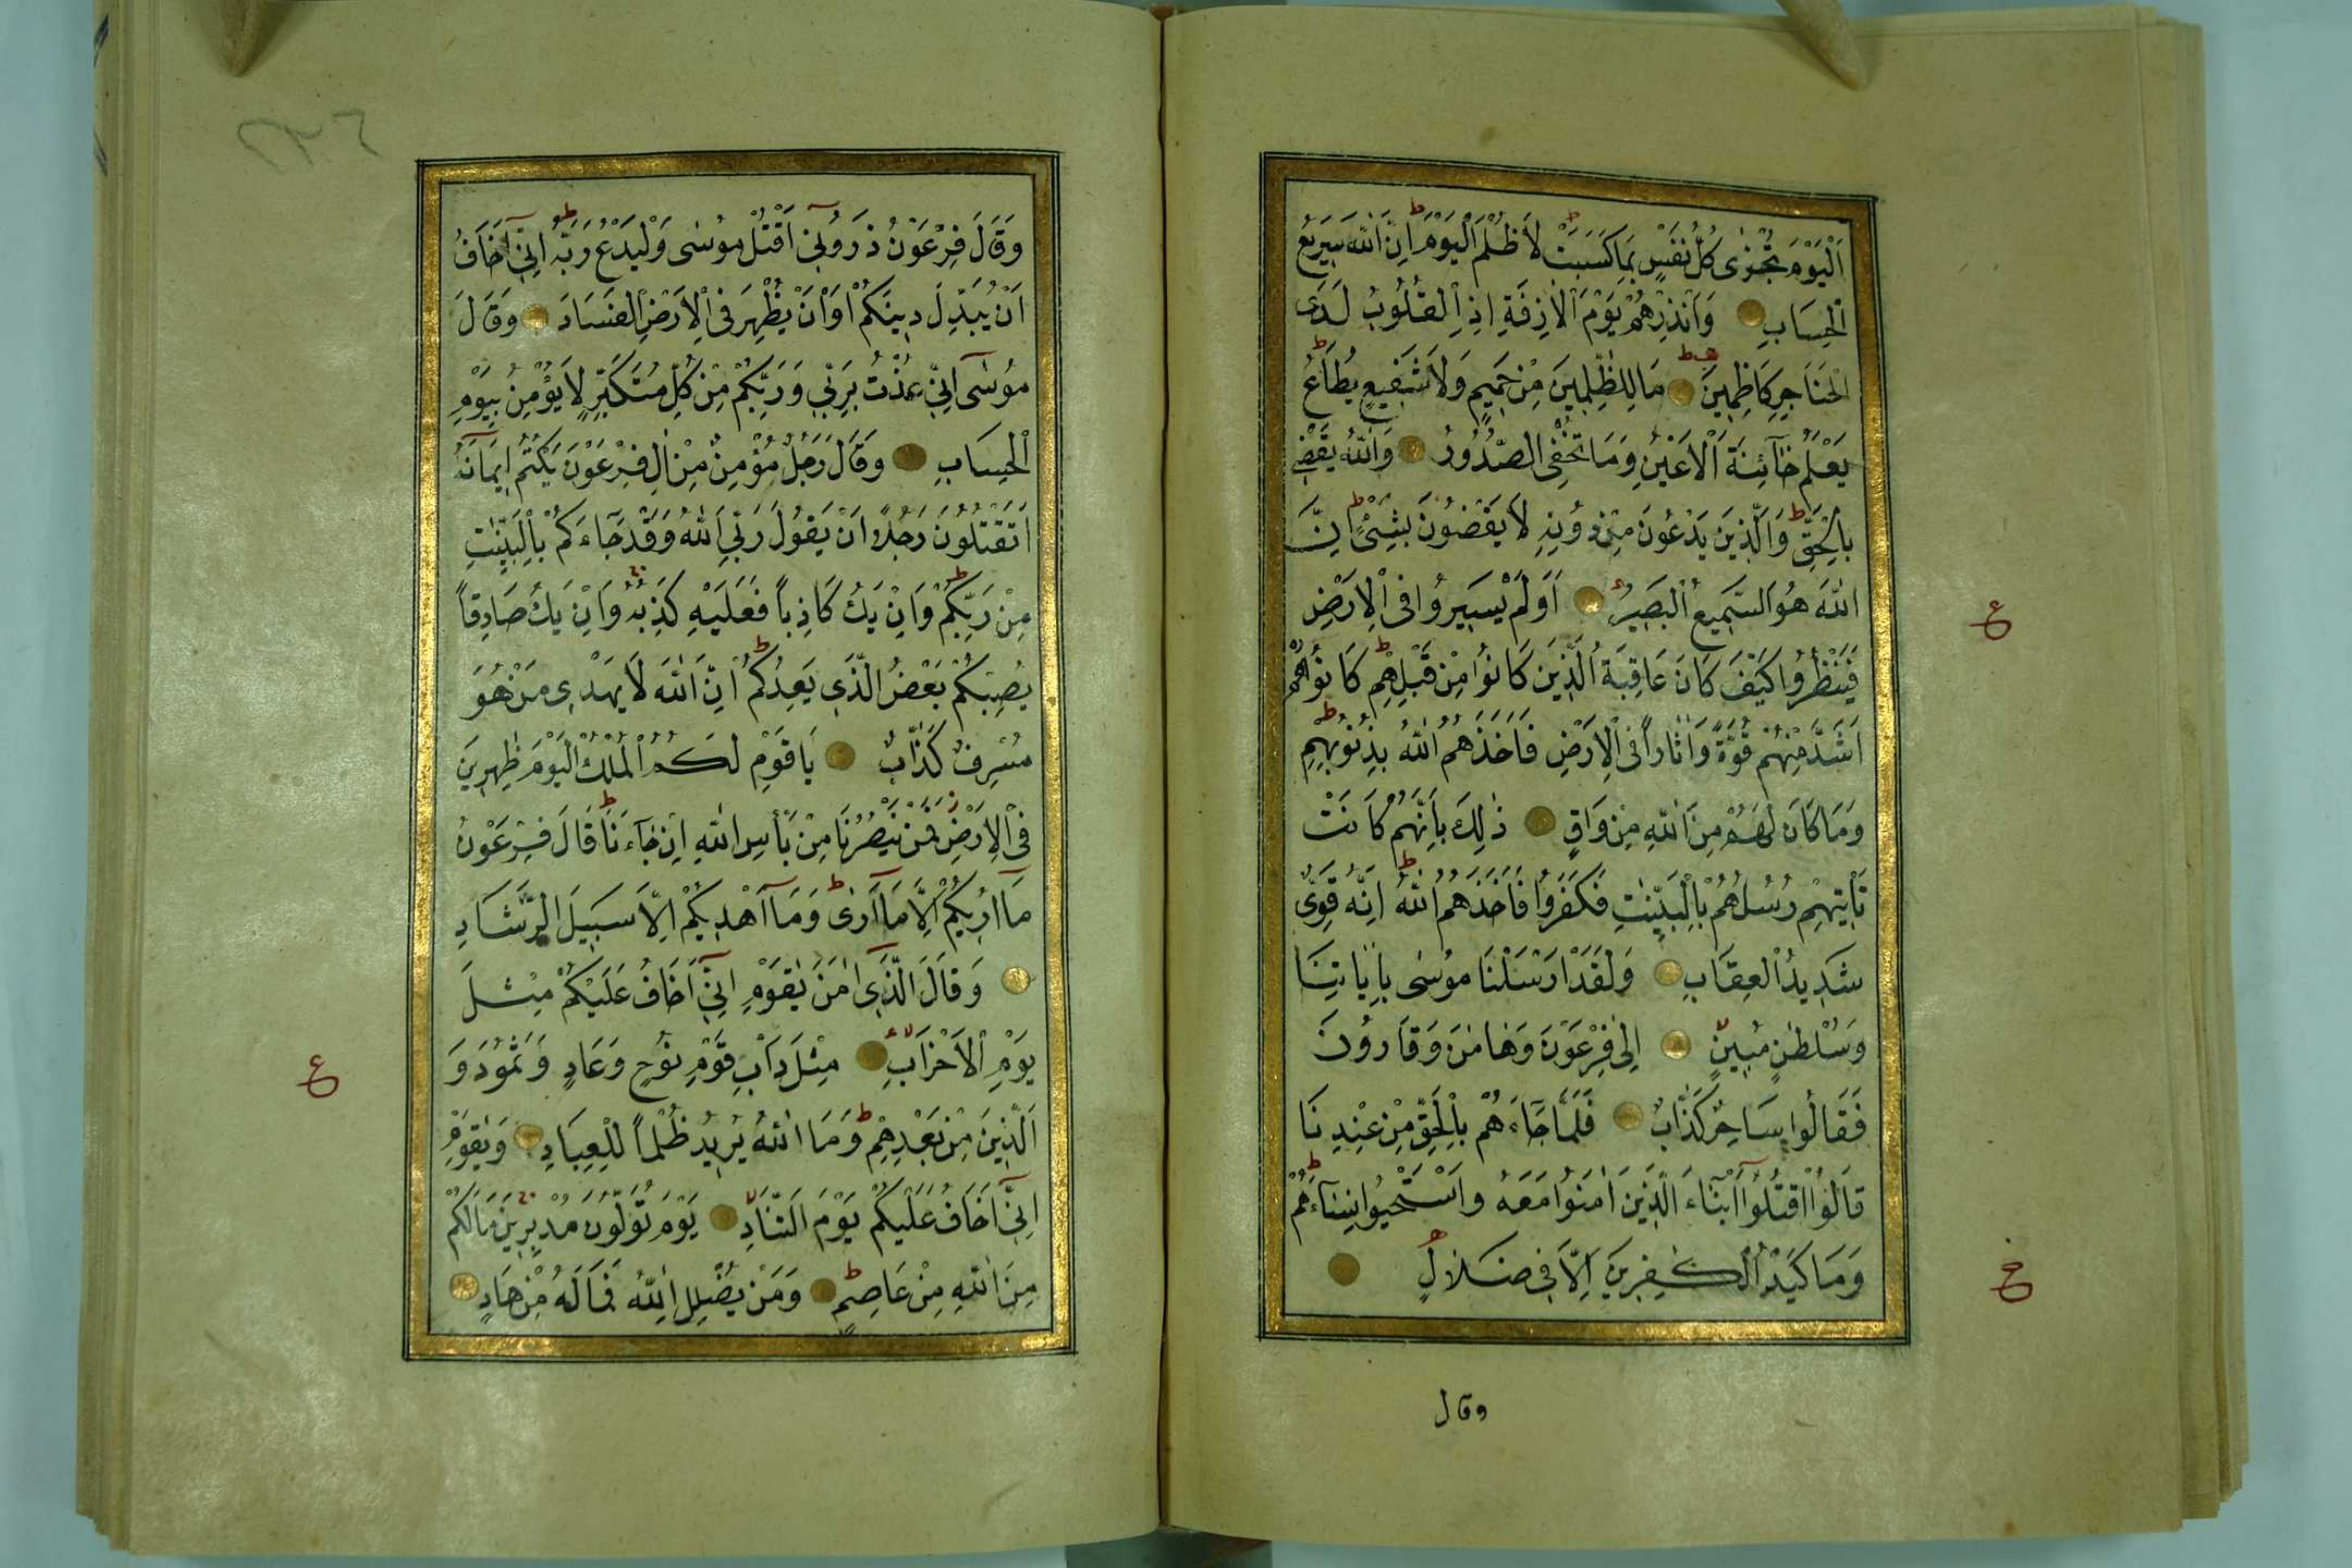 اَلْيَوْمَ تُجْزٰى كُلُّ نَفْسٍ بِمَا كَسَبَتْ لَا ظُلْمَ الْيَوْمَ اِنَّ اللّٰهَ سَرِيعُ
الْحِسَابِ وَاَنْذِرْهُمْ يَوْمَ الْاٰزِفَةِ اِذِ الْقُلُوبُ لَدَى
الْحَنَاجِرِ كَاظِمِينَ مَا لِلظّٰلِمِينَ مِنْ حَمِيمٍ وَلَا شَفِيعٍ يُطَاعُ
يَعْلَمُ خَآئِنَةَ الْاَعْيُنِ وَمَا تُخْفِى الصُّدُورُ وَاللّٰهُ يَقْضِى
بِالْحَقِّ وَالَّذِينَ يَدْعُونَ مِنْ دُونِهِ لَا يَقْضُونَ بِشَيْءٍ اِنَّ
اللّٰهَ هُوَ السَّمِيعُ الْبَصِيرُ اَوَلَمْ يَسِيرُوا فِى الْاَرْضِ
فَيَنْظُرُوا كَيْفَ كَانَ عَاقِبَةُ الَّذِينَ كَانُوا مِنْ قَبْلِهِمْ كَانُوا هُمْ
اَشَدَّ مِنْهُمْ قُوَّةً وَاٰثَاراً فِى الْاَرْضِ فَاَخَذَهُمُ اللّٰهُ بِذُنُوبِهِمْ
وَمَا كَانَ لَهُمْ مِنَ اللّٰهِ مِنْ وَاقٍ ذٰلِكَ بِاَنَّهُمْ كَانَتْ
تَاْتِيهِمْ رُسُلُهُمْ بِالْبَيِّنٰتِ فَكَفَرُوا فَاَخَذَهُمُ اللّٰهُ اِنَّهُ قَوِىٌّ
شَدِيدُ الْعِقَابِ وَلَقَدْ اَرْسَلْنَا مُوسٰى بِاٰيَاتِنَا
وَسُلْطٰنٍ مُبِينٍ اِلٰى فِرْعَوْنَ وَهَامٰنَ وَقَارُونَ
فَقَالُوا سَاحِرٌ كَذَّابٌ فَلَمَّا جَآءَهُمْ بِالْحَقِّ مِنْ عِنْدِنَا
قَالُوا اقْتُلُوا اَبْنَآءَ الَّذِينَ اٰمَنُوا مَعَهُ وَاسْتَحْيُوا نِسَآءَهُمْ
وَمَا كَيْدُ الْكٰفِرِينَ اِلَّا فِى ضَلَالٍ
وقال
ع
وَقَالَ فِرْعَوْنُ ذَرُونِى اَقْتُلْ مُوسٰى وَلْيَدْعُ رَبَّهُ اِنِّى اَخَافُ
اَنْ يُبَدِّلَ دِينَكُمْ اَوْ اَنْ يُظْهِرَ فِى الْاَرْضِ الْفَسَادَ وَقَالَ
مُوسٰى اِنِّى عُذْتُ بِرَبِّى وَرَبِّكُمْ مِنْ كُلِّ مُتَكَبِّرٍ لَا يُؤْمِنُ بِيَوْمِ
الْحِسَابِ وَقَالَ رَجُلٌ مُؤْمِنٌ مِنْ اٰلِ فِرْعَوْنَ يَكْتُمُ اِيمَانَهُ
اَتَقْتُلُونَ رَجُلاً اَنْ يَقُولَ رَبِّىَ اللّٰهُ وَقَدْ جَآءَكُمْ بِالْبَيِّنٰتِ
مِنْ رَبِّكُمْ وَاِنْ يَكُ كَاذِباً فَعَلَيْهِ كَذِبُهُ وَاِنْ يَكُ صَادِقاً
يُصِبْكُمْ بَعْضُ الَّذِى يَعِدُكُمْ اِنَّ اللّٰهَ لَا يَهْدِى مَنْ هُوَ
مُسْرِفٌ كَذَّابٌ يَا قَوْمِ لَكُمُ الْمُلْكُ الْيَوْمَ ظٰهِرِينَ
فِى الْاَرْضِ فَمَنْ يَنْصُرُنَا مِنْ بَاْسِ اللّٰهِ اِنْ جَآءَنَا قَالَ فِرْعَوْنُ
مَآ اُرِيكُمْ اِلَّا مَآ اَرٰى وَمَآ اَهْدِيكُمْ اِلَّا سَبِيلَ الرَّشَادِ
وَقَالَ الَّذِى اٰمَنَ يٰقَوْمِ اِنِّى اَخَافُ عَلَيْكُمْ مِثْلَ
يَوْمِ الْاَحْزَابِ مِثْلَ دَاْبِ قَوْمِ نُوحٍ وَعَادٍ وَثَمُودَ وَ
الَّذِينَ مِنْ بَعْدِهِمْ وَمَا اللّٰهُ يُرِيدُ ظُلْماً لِلْعِبَادِ وَيٰقَوْمِ
اِنِّى اَخَافُ عَلَيْكُمْ يَوْمَ التَّنَادِ يَوْمَ تُوَلُّونَ مُدْبِرِينَ مَالَكُمْ
مِنَ اللّٰهِ مِنْ عَاصِمٍ وَمَنْ يُضْلِلِ اللّٰهُ فَمَا لَهُ مِنْ هَادٍ
ع